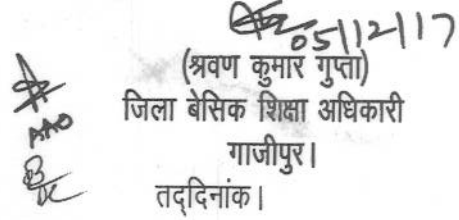 05/12/17
(श्रवण कुमार गुप्ता)
जिला बेसिक शिक्षा अधिकारी
AAO
गाजीपुर।
तद्दिनांक।